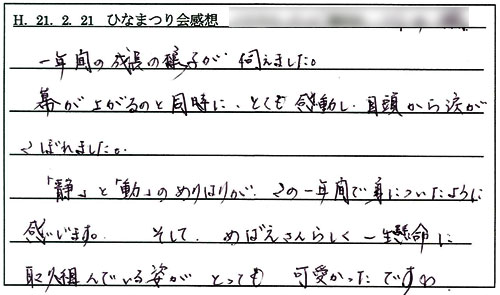 H. 21. 2. 21 ひなまつり会感想
一年間の成長の様子が 伺えました。
幕が上がるのと同時に、とても感動し、目頭から涙が
こぼれました。
「静」と「動」のめりはりが、この一年間で身についたように
感じます。 そして、めばえさんらしく一生懸命に
取り組んでいる姿が とっても 可愛かったですね